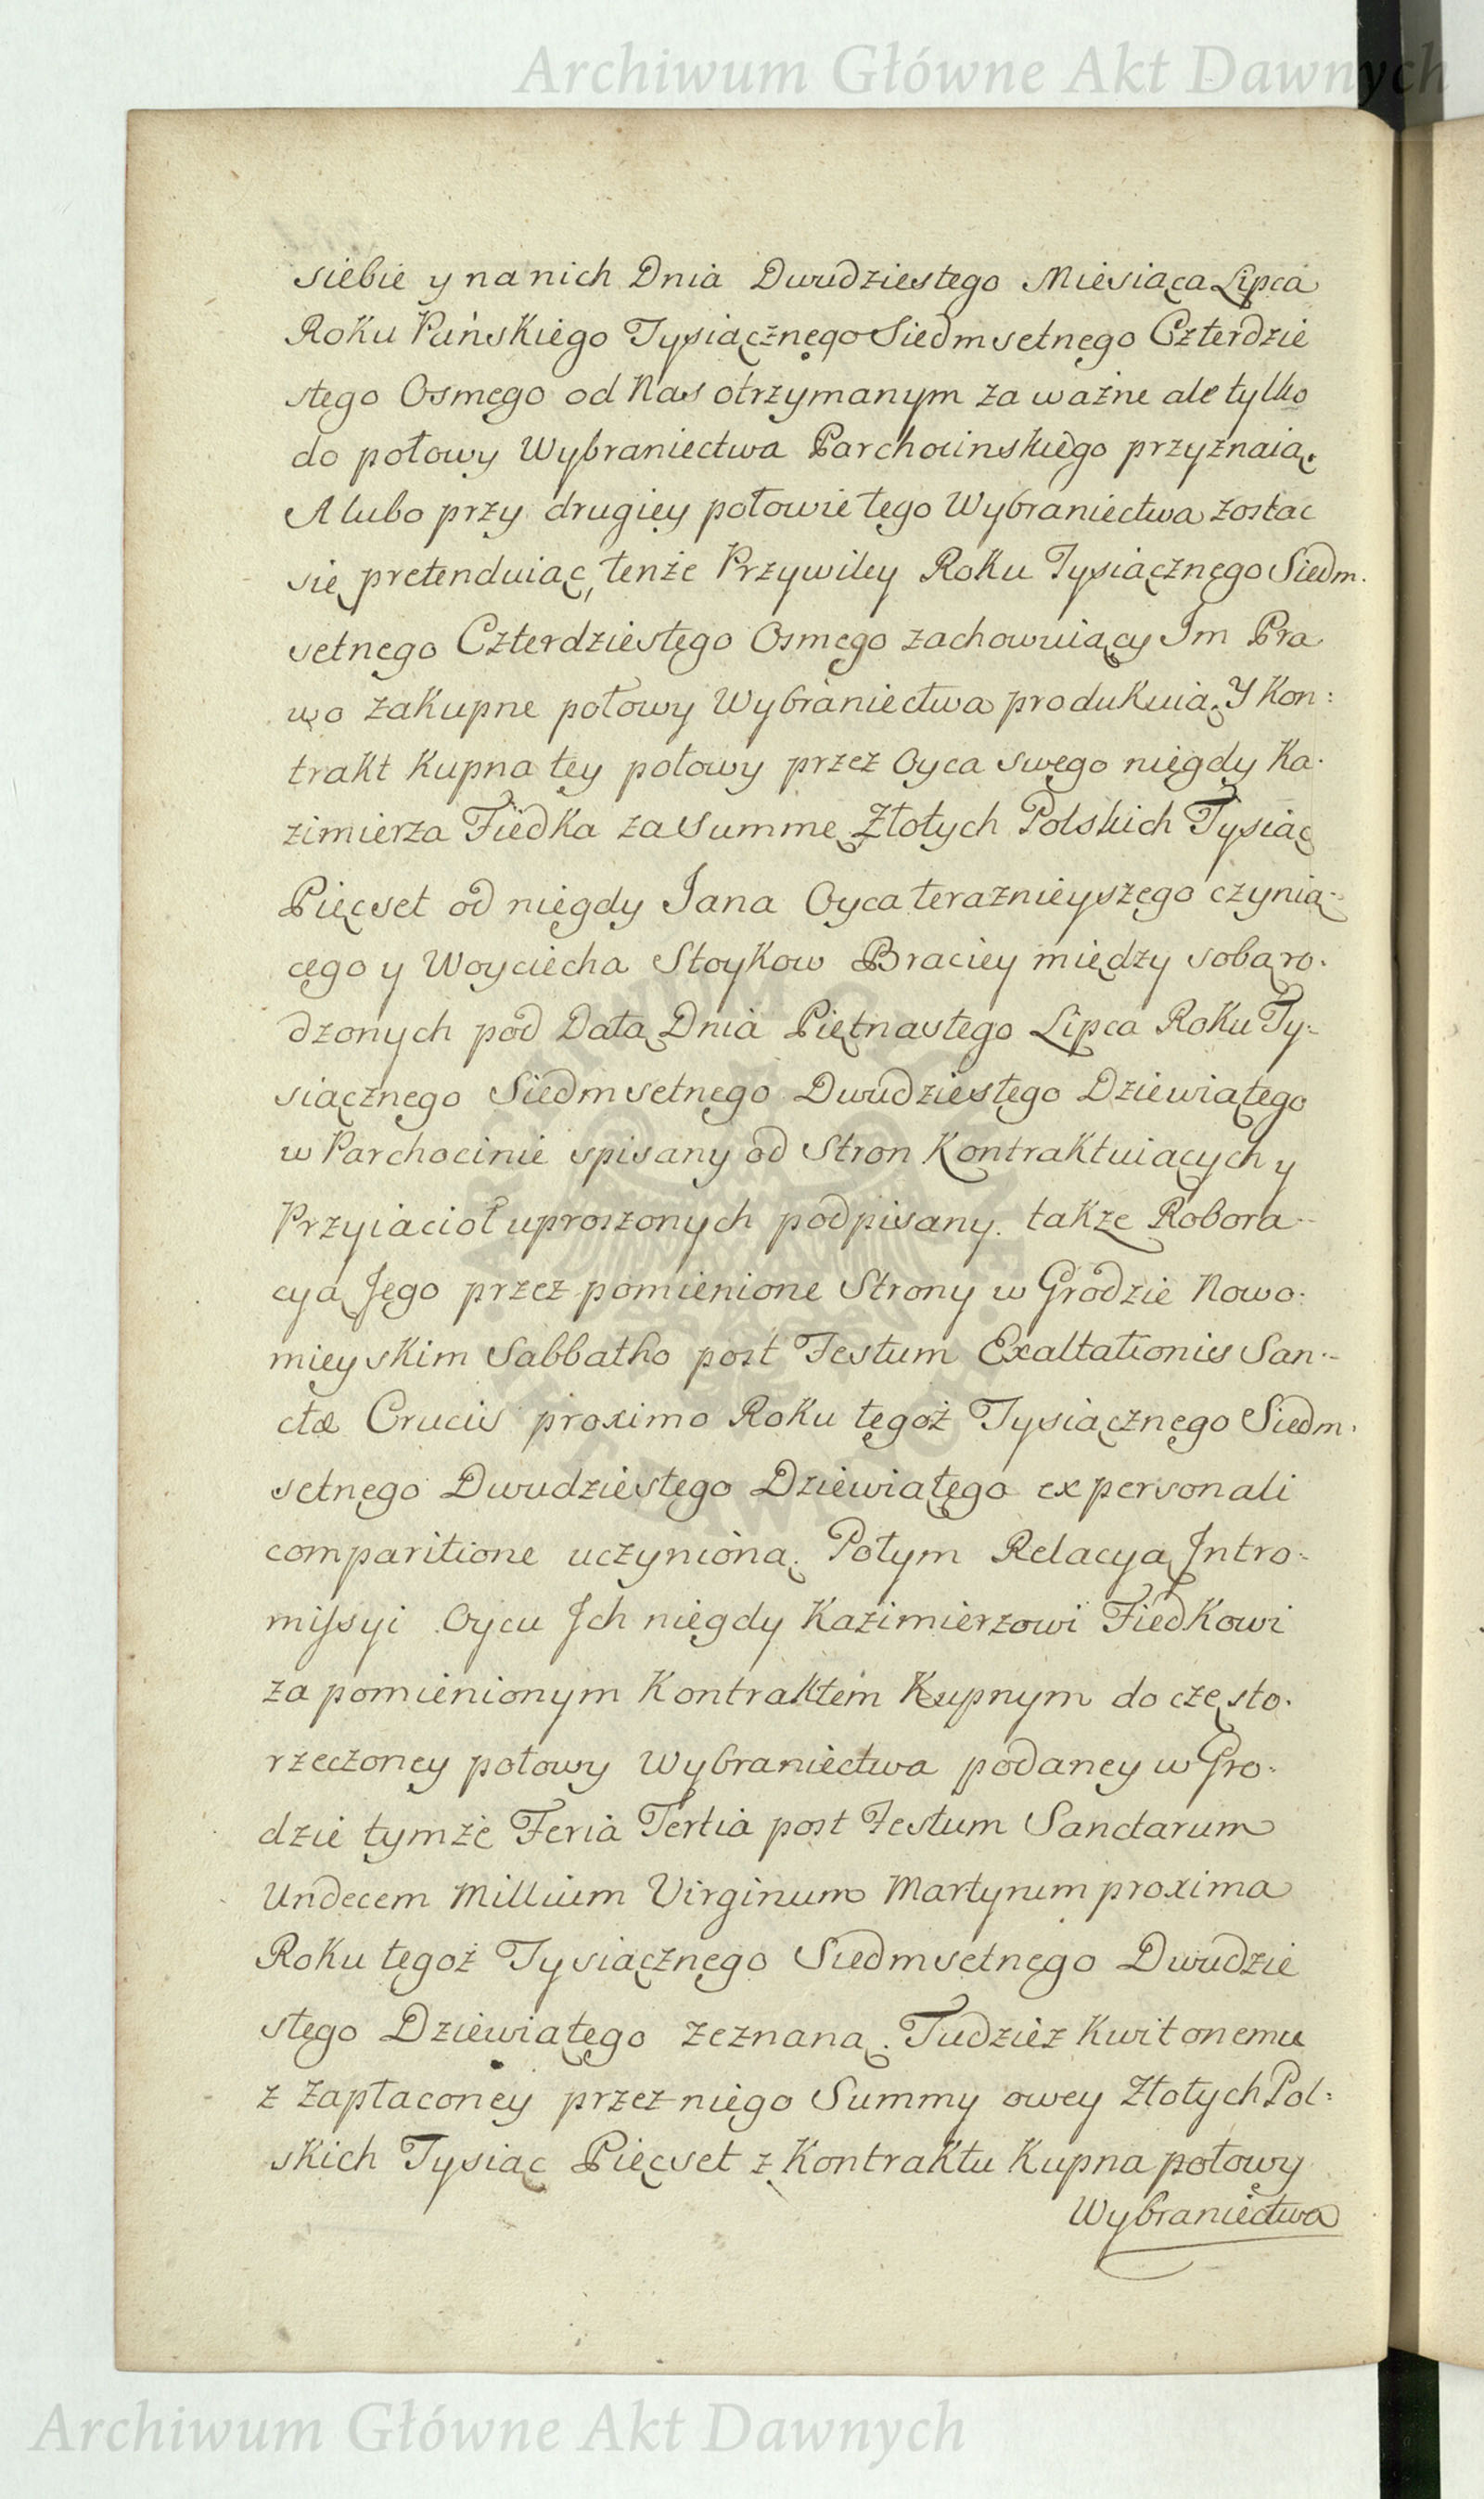 Archiwum Główne Akt Dawnych
siebie y na nich Dnia Dwudziestego Miesiąca Lipca
Roku Pańskiego Tysiącznego Siedmsetnego Czterdzie
stego Osmego od Nas otrzymanym za ważne ale tylko
do połowy Wybraniectwa Parchocinskiego przyznaią.
A lubo przy drugiey połowie tego Wybraniectwa zostac
się pretenduiąc, tenże Przywiley Roku Tysiącznego Siedm.
setnego Czterdziestego Osmego zachowuiący Im Pra
wo zakupne połowy Wybraniectwa produkuią. Y Kon:
trakt Kupna tey połowy przez Oyca swego niegdy Ka.
zimierza Fiedka za Summę Złotych Polskich Tysiąc
Pięcset od niegdy Jana Oyca teraznieyszego czynią-
cego y Woyciecha Stoykow Braciey między sobą ro.
dzonych pod Datą Dnia Piętnastego Lipca Roku Ty-
siącznego Siedmsetnego Dwudziestego Dziewiątego
w Parchocinie spisany od Stron Kontraktuiących y
Przyiacioł uproszonych podpisany. także Robora-
cyą Jego przez pomienione Strony w Grodzie Nowo-
mieyskim Sabbatho post Festum Exaltationis San-
ctæ Crucis proximo Roku tegoż Tysiącznego Siedm.
setnego Dwudziestego Dziewiątego ex personali
comparitione uczynioną. Potym Relacyą Intro-
missyi Oycu Ich niegdy Kazimierzowi Fiedkowi
za pomienionym Kontraktem Kupnym do często.
rzeczoney połowy Wybraniectwa podaney w Gro-
dzie tymże Feria Tertia post Festum Sanctarum
Undecem Millium Virginum Martyrum proxima
Roku tegoż Tysiącznego Siedmsetnego Dwudzie
stego Dziewiątego zeznaną. Tudziez Kwit onemu
z zapłaconey przez niego Summy owey Złotych Pol:
skich Tysiąc Pięcset z Kontraktu Kupna połowy
Wybraniectwa
Archiwum Główne Akt Dawnych